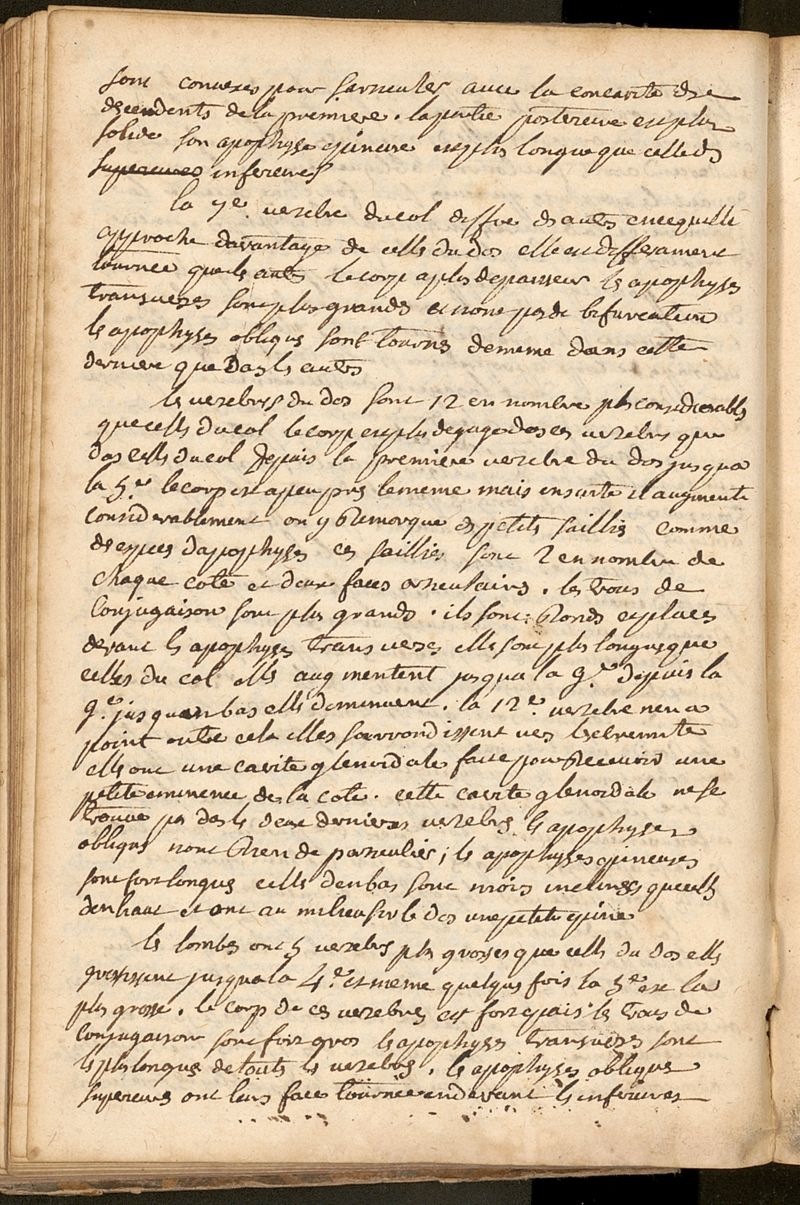 sont convexes pour sarticuler avec la concavité des
descendents de la premiere. la partie posterieure est plus
solide son apophyse epineuse est plus longue que celle des
superieures inferieures
la 7e. vertebre du col differe des autres en ce quelle
approche davantage de celles du dos elle est differament
tournée que les autres le corp a plus depaisseur les apophyses
transverses sont plus grandes et nont pas de bifurcation
les apophyses obliques sont tournés de meme dans cette
derniere que dans les autres
les vertebres du dos sont 12 en nombre plus considerables
que celles du col le corp est plus degagé dans ces vertebres que
dans celles du col Depuis la premiere vertebre du dos jusqua
la 5.e le corp est a peu pres le meme mais ensuite il augmente
considerablement on y Remarque des petits saillies comme
des especes dapophyses ces saillies sont 2 en nombre de
chaque coté et deux faces articulaires. les trous de
Conjugaison sont plus grands. ils sont Ronds et places
devant les apophyses transverses elles sont plus longues que
celles du col elles augmentent jusqua la 9.e depuis la
9.e jusquen bas elles diminuent. la 12.e vertebre nen a
point outre cela elles sarrondissent vers lextremite
elles ont une cavite glenoidale faite pour Recevoir une
petite eminence de la cote. cette cavite glenoidale ne se
trouve pas dans les deux dernieres vertebres les apophyses
obliques nont Rien de particulier; les apophyses epineuses
sont fort longues celles den bas sont moins inclinees que celles
den haut et ont au milieu sur le dos une petite epine
les lombes ont 5 vertebres plus grosses que celles du dos elles
grossissent jusqua la 4.e et meme quelques fois la 5.e est la
plus grosse. le corp de ces vertebres est fort epais les trous de
Conjugaison sont fort gros les apophyses transverses sont
les plus longues de touts les vertebres. les apophyses obliques
superieures ont leurs faces tournée en devant les inferieures